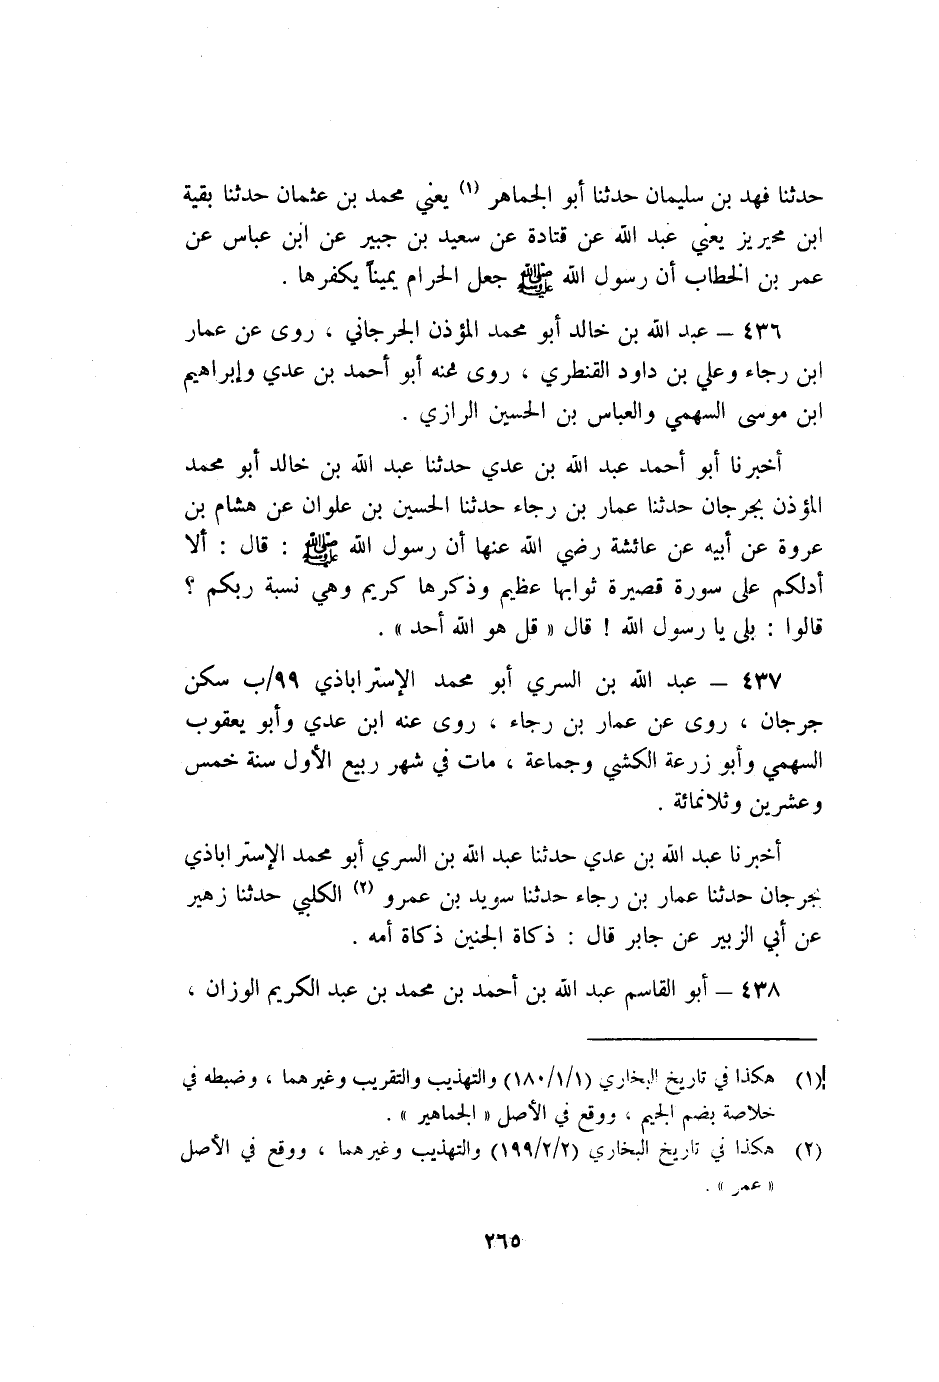 حدثنا فهد بن سليمان حدثنا أبو الجماهر (١) يعني محمد بن عثمان حدثنا بقية
ابن محيريز يعني عبد الله عن قتادة عن سعيد بن جبير عن ابن عباس عن
عمر بن الخطاب أن رسول الله ﷺ جعل الحرام يميناً يكفرها .
٤٣٦ – عبد الله بن خالد أبو محمد المؤذن الجرجاني ، روى عن عمار
ابن رجاء وعلي بن داود القنطري ، روى عنه أبو أحمد بن عدي وإبراهيم
ابن موسى السهمي والعباس بن الحسين الرازي .
أخبرنا أبو أحمد عبد الله بن عدي حدثنا عبد الله بن خالد أبو محمد
المؤذن بجرجان حدثنا عمار بن رجاء حدثنا الحسين بن علوان عن هشام بن
عروة عن أبيه عن عائشة رضي الله عنها أن رسول الله ﷺ : قال : ألا
أدلكم على سورة قصيرة ثوابها عظيم وذكرها كريم وهي نسبة ربكم ؟
قالوا : بلى يا رسول الله ! قال « قل هو الله أحد » .
٤٣٧ – عبد الله بن السري أبو محمد الإستراباذي ٩٩/ب سكن
جرجان ، روى عن عمار بن رجاء ، روى عنه ابن عدي وأبو يعقوب
السهمي وأبو زرعة الكشي وجماعة ، مات في شهر ربيع الأول سنة خمس
وعشرين وثلاثمائة .
أخبرنا عبد الله بن عدي حدثنا عبد الله بن السري أبو محمد الإستراباذي
بجرجان حدثنا عمار بن رجاء حدثنا سويد بن عمرو (٢) الكلبي حدثنا زهير
عن أبي الزبير عن جابر قال : ذكاة الجنين ذكاة أمه .
٤٣٨ – أبو القاسم عبد الله بن أحمد بن محمد بن عبد الكريم الوزان ،
(١) هكذا في تاريخ البخاري (١٨٠/١/١) والتهذيب والتقريب وغيرهما ، وضبطه في
خلاصة بضم الجيم ، ووقع في الأصل « الجماهير » .
(٢) هكذا في تاريخ البخاري (١٩٩/٢/٢) والتهذيب وغيرهما ، ووقع في الأصل
« عمر » .
٢٦٥